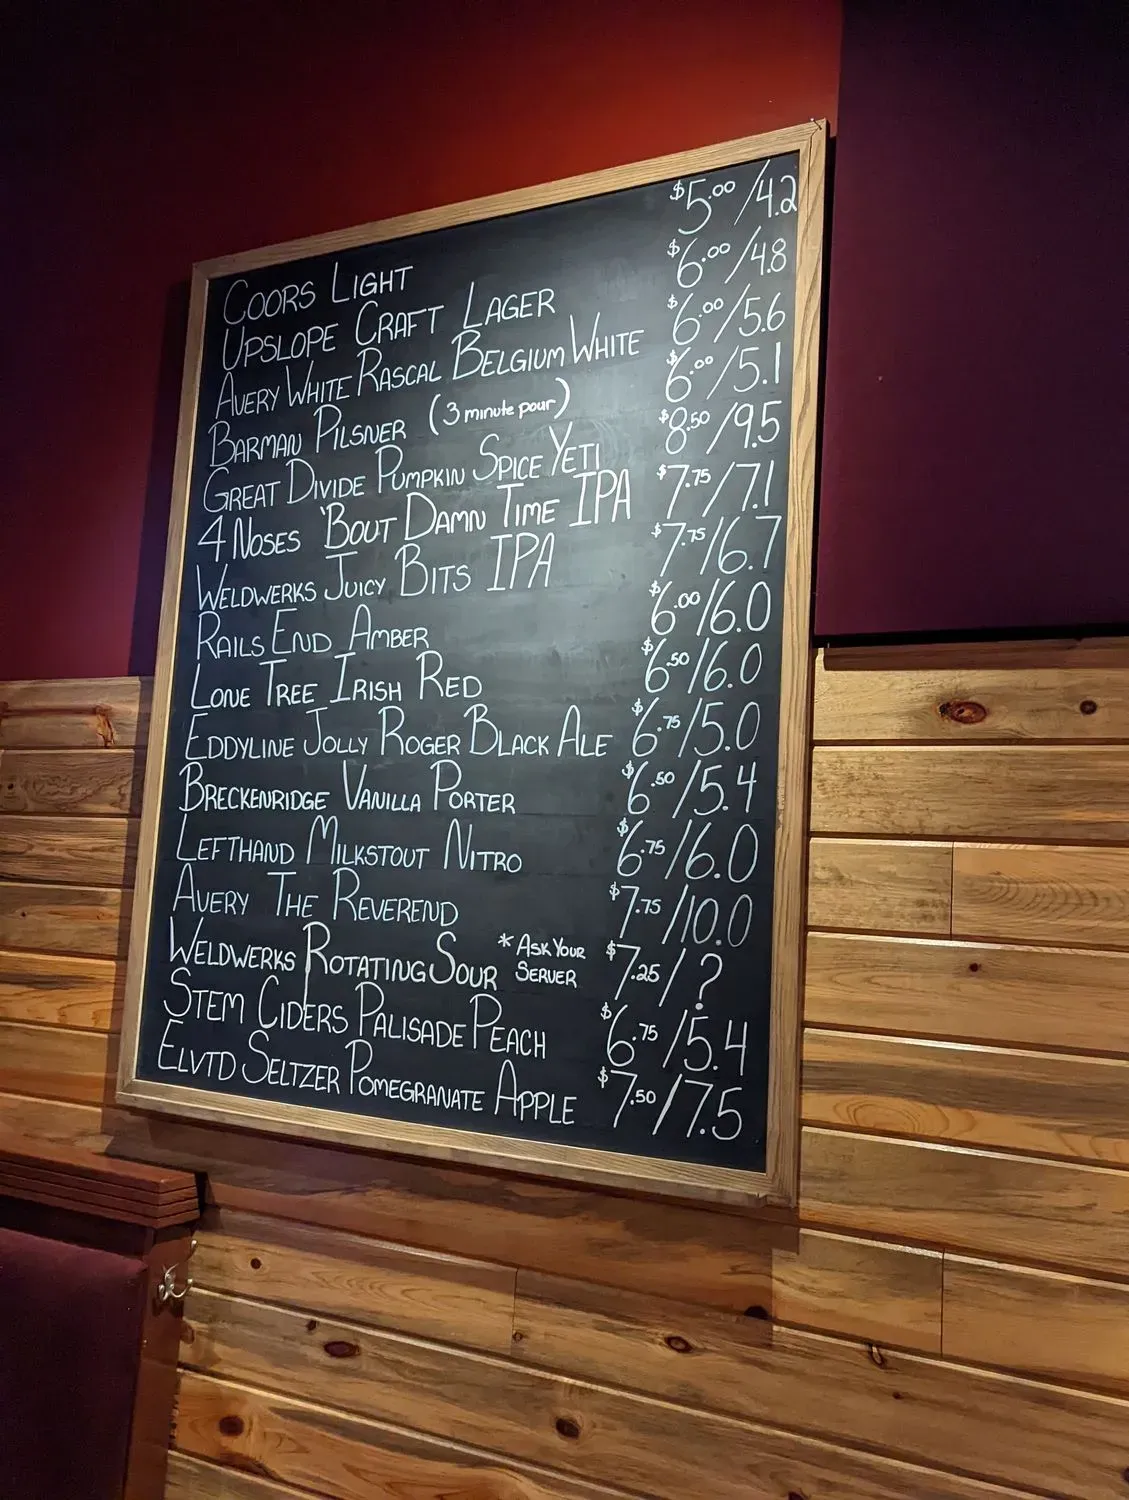 COORS LIGHT $5.00/4.2
UPSLOPE CRAFT LAGER $6.00/4.8
AVERY WHITE RASCAL BELGIUM WHITE $6.00/5.6
BARMAN PILSNER (3 minute pour) $6.00/5.1
GREAT DIVIDE PUMPKIN SPICE YETI $8.50/9.5
4 NOSES 'BOUT DAMN TIME IPA $7.75/7.1
WELDWERKS JUICY BITS IPA $7.75/6.7
RAILS END AMBER $6.00/6.0
LONE TREE IRISH RED $6.50/6.0
EDDYLINE JOLLY ROGER BLACK ALE $6.75/5.0
BRECKENRIDGE VANILLA PORTER $6.50/5.4
LEFTHAND MILKSTOUT NITRO $6.75/6.0
AVERY THE REVEREND $7.75/10.0
WELDWERKS ROTATING SOUR *ASK YOUR SERVER $7.25/?
STEM CIDERS PALISADE PEACH $6.75/5.4
ELVTD SELTZER POMEGRANATE APPLE $7.50/7.5